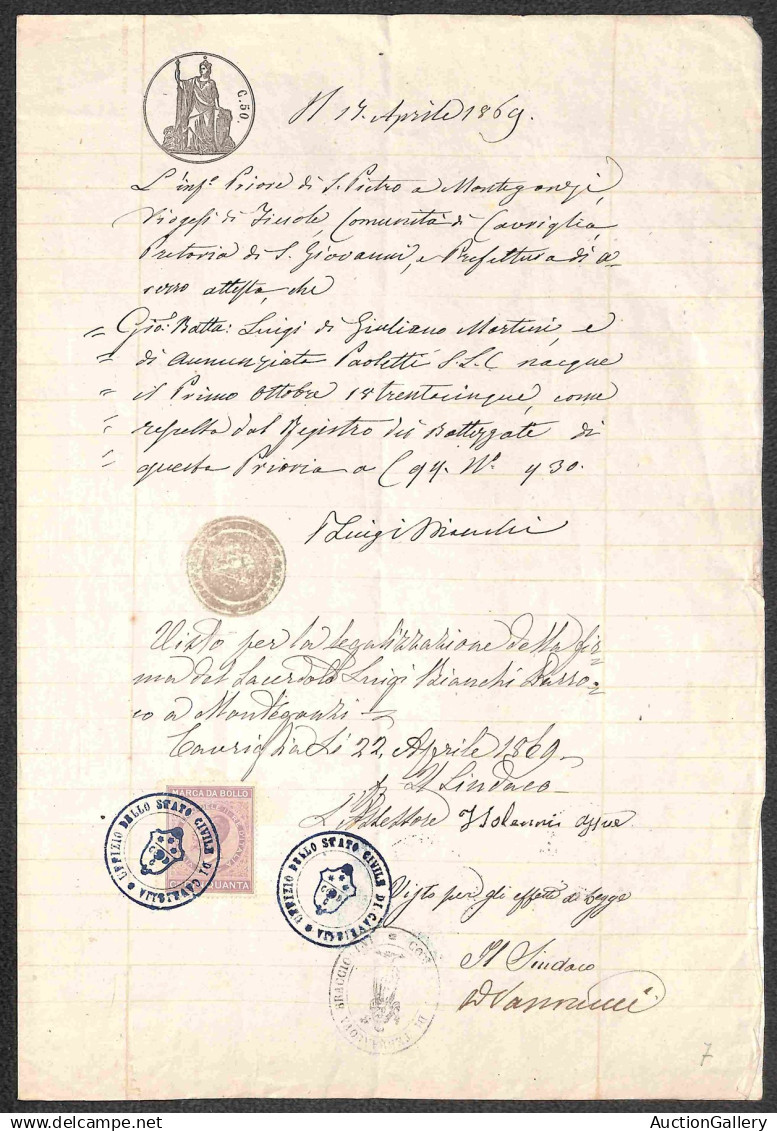 C. 50.
Il 17. Aprile 1869.
L'inf.º Priore di S. Pietro a Montegonzi,
Diogesi di Fiesole, Comunità di Cavriglia,
Pretoria di S. Giovanni, e Prefettura di A-
rezzo attesta, che
Gio: Batta: Luigi di Giuliano Martini, e
di Annunziata Paoletti S.L.C nacque
il Primo Ottobre 18trentacinque, come
resulta dal Registro dei Battezzati di
questa Prioria a C 94. Nº 430.
Luigi Bianchi
Visto per la legalizzazione della fir
ma del Sacerdote Luigi Bianchi Parro
co a Montegonzi
Cavriglia Lì 22, Aprile 1869
Il Sindaco
L'Assessore
MARCA DA BOLLO
UFFIZIO DELLO STATO CIVILE DI CAVRIGLIA
UFFIZIO DELLO STATO CIVILE DI CAVRIGLIA
Visto per gli effetti di legge
Il Sindaco
DVannucci
COM DI TERRANUOVA BRACCIOLINI
7
AuctionGallery